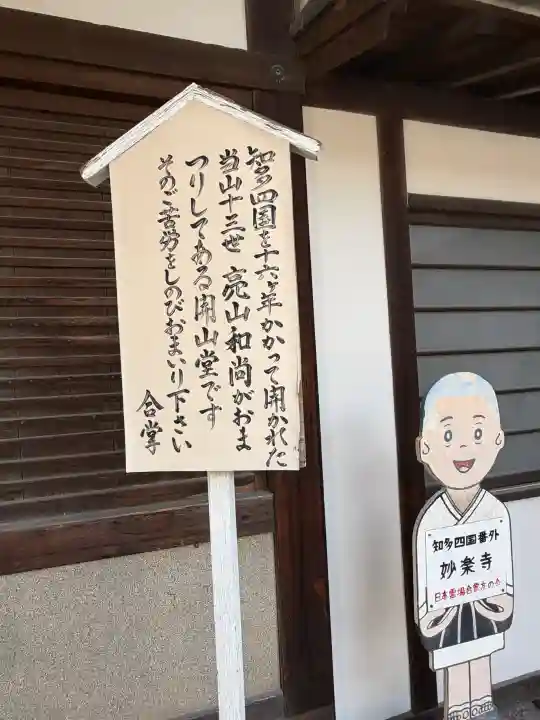 知多四国を十六ヶ年かかって開かれた
当山十三世 亮山和尚がおま
つりしてある開山堂です
そのご苦労をしのびおまいり下さい
合掌
知多四国番外
妙楽寺
日本霊場会